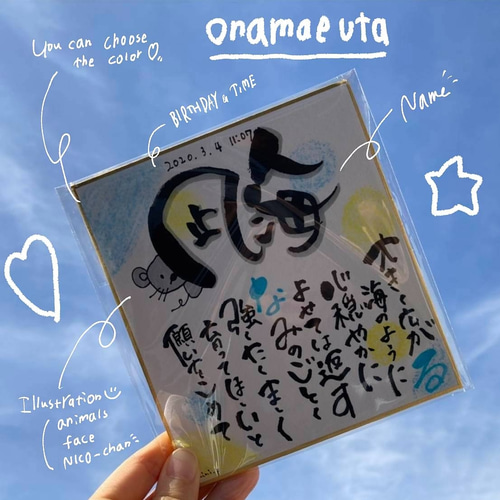 onamae uta
You can choose
the color
BIRTHDAY & TIME
Name
2020.3.4 11:07
海凪
大きく広がる
海のように
心穏やかに
よせては返す
なみのごとく
強くたくましく
育ってほしいと
願いをこめて
Illustration
animals
face
NICO-chan